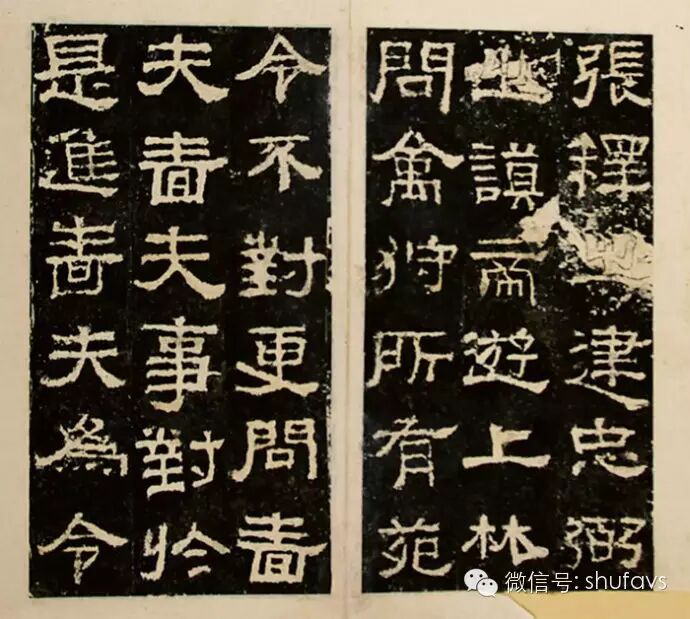 張釋之建忠弼
之謨帝遊上林
問禽狩所有苑
令不對更問嗇
夫嗇夫事對於
是進嗇夫為令
微信号: shufavs